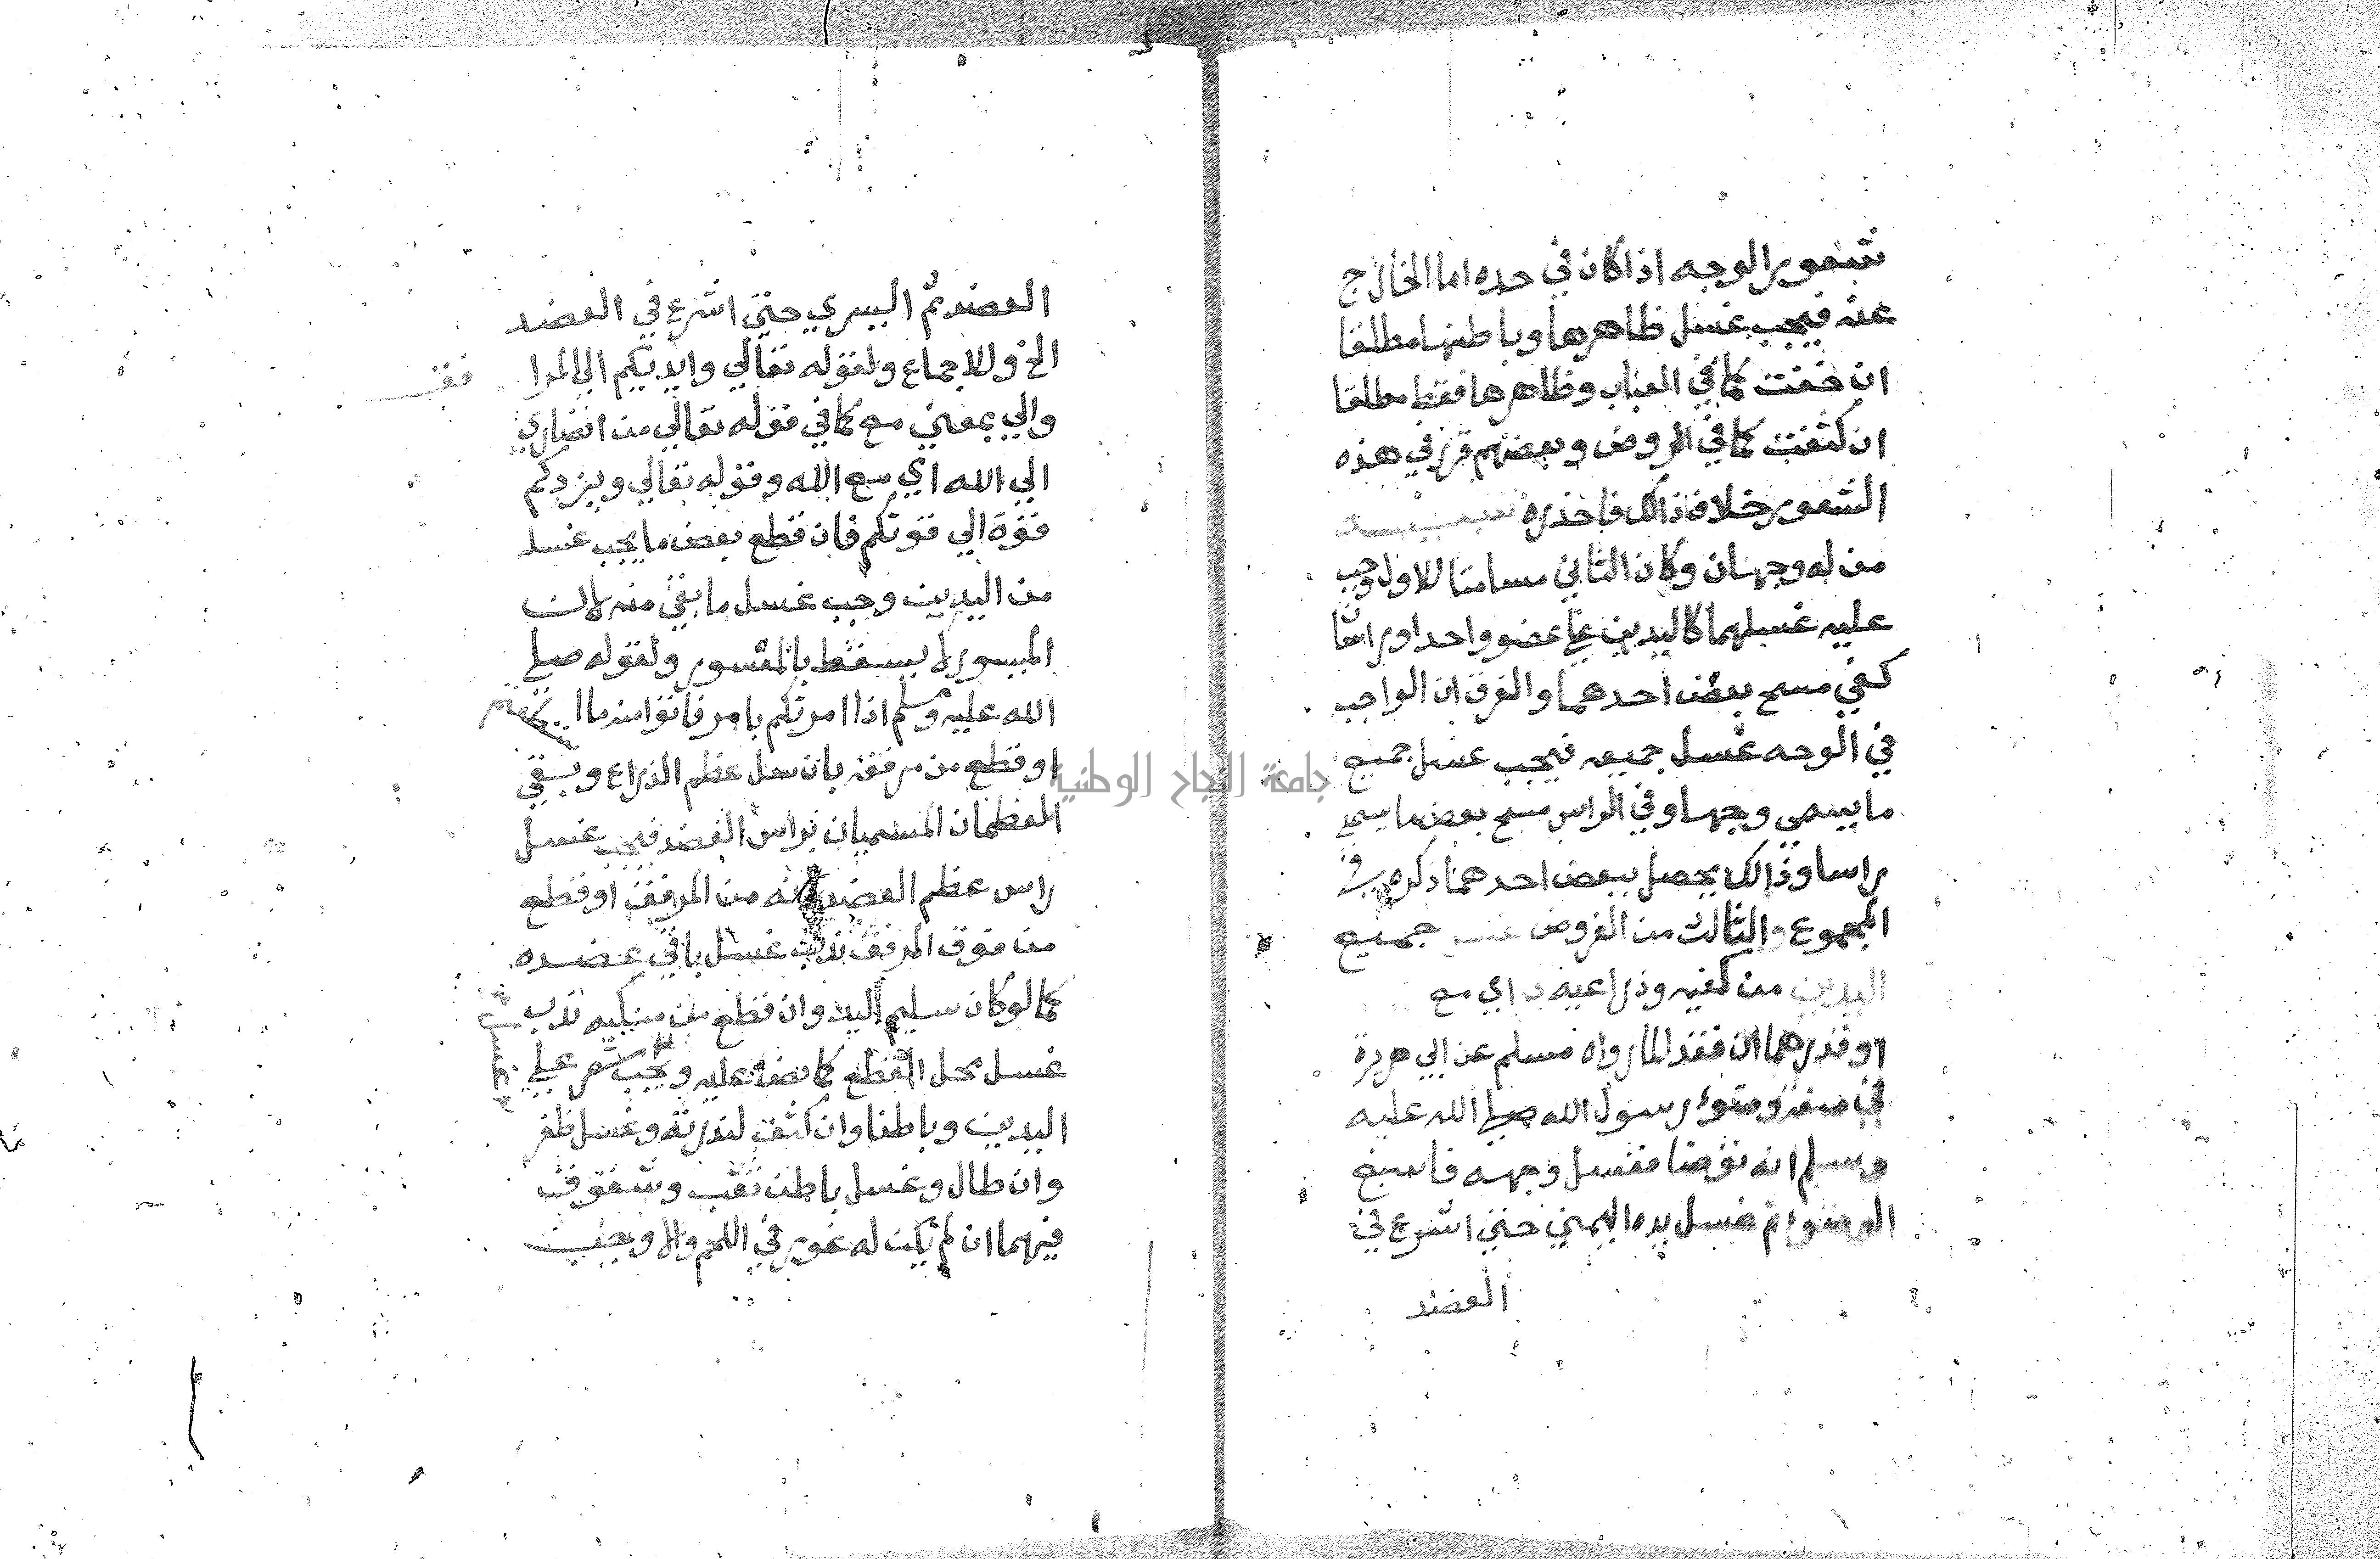 شعور الوجه اذا كان في حده اما الخارج
عنه فيجب غسل ظاهرها وباطنها مطلقا
ان خفت كما في العباب وظاهرها فقط مطلقا
ان كثفت كما في الروض وبعضهم قرر في هذه
الشعور خلاف ذالك فاحذره تنبيه
من له وجهان وكان الثاني مسامتا للاول وجب
عليه غسلهما كاليدين على عضو واحد او راسان
كفي مسح بعض احدهما والفرق ان الواجب
في الوجه غسل جميعه فيجب غسل جميع
ما يسمي وجها وفي الراس مسح بعض ما يسمي
راسا وذالك يحصل ببعض احدهما ذكره في
المجموع والثالث من الفروض غسل جميع
اليدين من كفيه وذراعيه اي مع
او قدرهما ان فقد لما رواه مسلم عن ابي هريرة
في صفة وضوء رسول الله صلي الله عليه
وسلم انه توضا فغسل وجهه فاسبغ
الوضوء ثم غسل يده اليمني حتي اشرع في
العضد
العضد ثم اليسري حتي اشرع في العضد
الخ وللاجماع ولقوله تعالي وايديكم الي المرا فق
والي بمعني مع كما في قوله تعالي من انصاري
الي الله اي مع الله وقوله تعالي ويزدكم
قوة الي قوتكم فان قطع بعض ما يجب غسله
من اليدين وجب غسل ما بقي منه لان
الميسور لا يسقط بالمعسور ولقوله صلي
الله عليه وسلم اذا امرتكم بامر فاتوا منه ما استطعتم
او قطع من مرفقه بان سل عظم الذراع وبقي
العظمان المسميان براس العضد فيجب غسل
راس عظم العضد لانه من المرفق او قطع
من فوق المرفق ندب غسل باقي عضده
كما لو كان سليم اليد وان قطع من منكبيه ندب
غسل محل القطع كما نص عليه ويجب شعر علي
اليدين وباطنا وان كثف لندرته وغسل ظفر
وان طال وغسل باطن ثقب وشقوق
فيهما ان لم يكن له غور في اللحم والا وجب
جامعة النجاح الوطنية